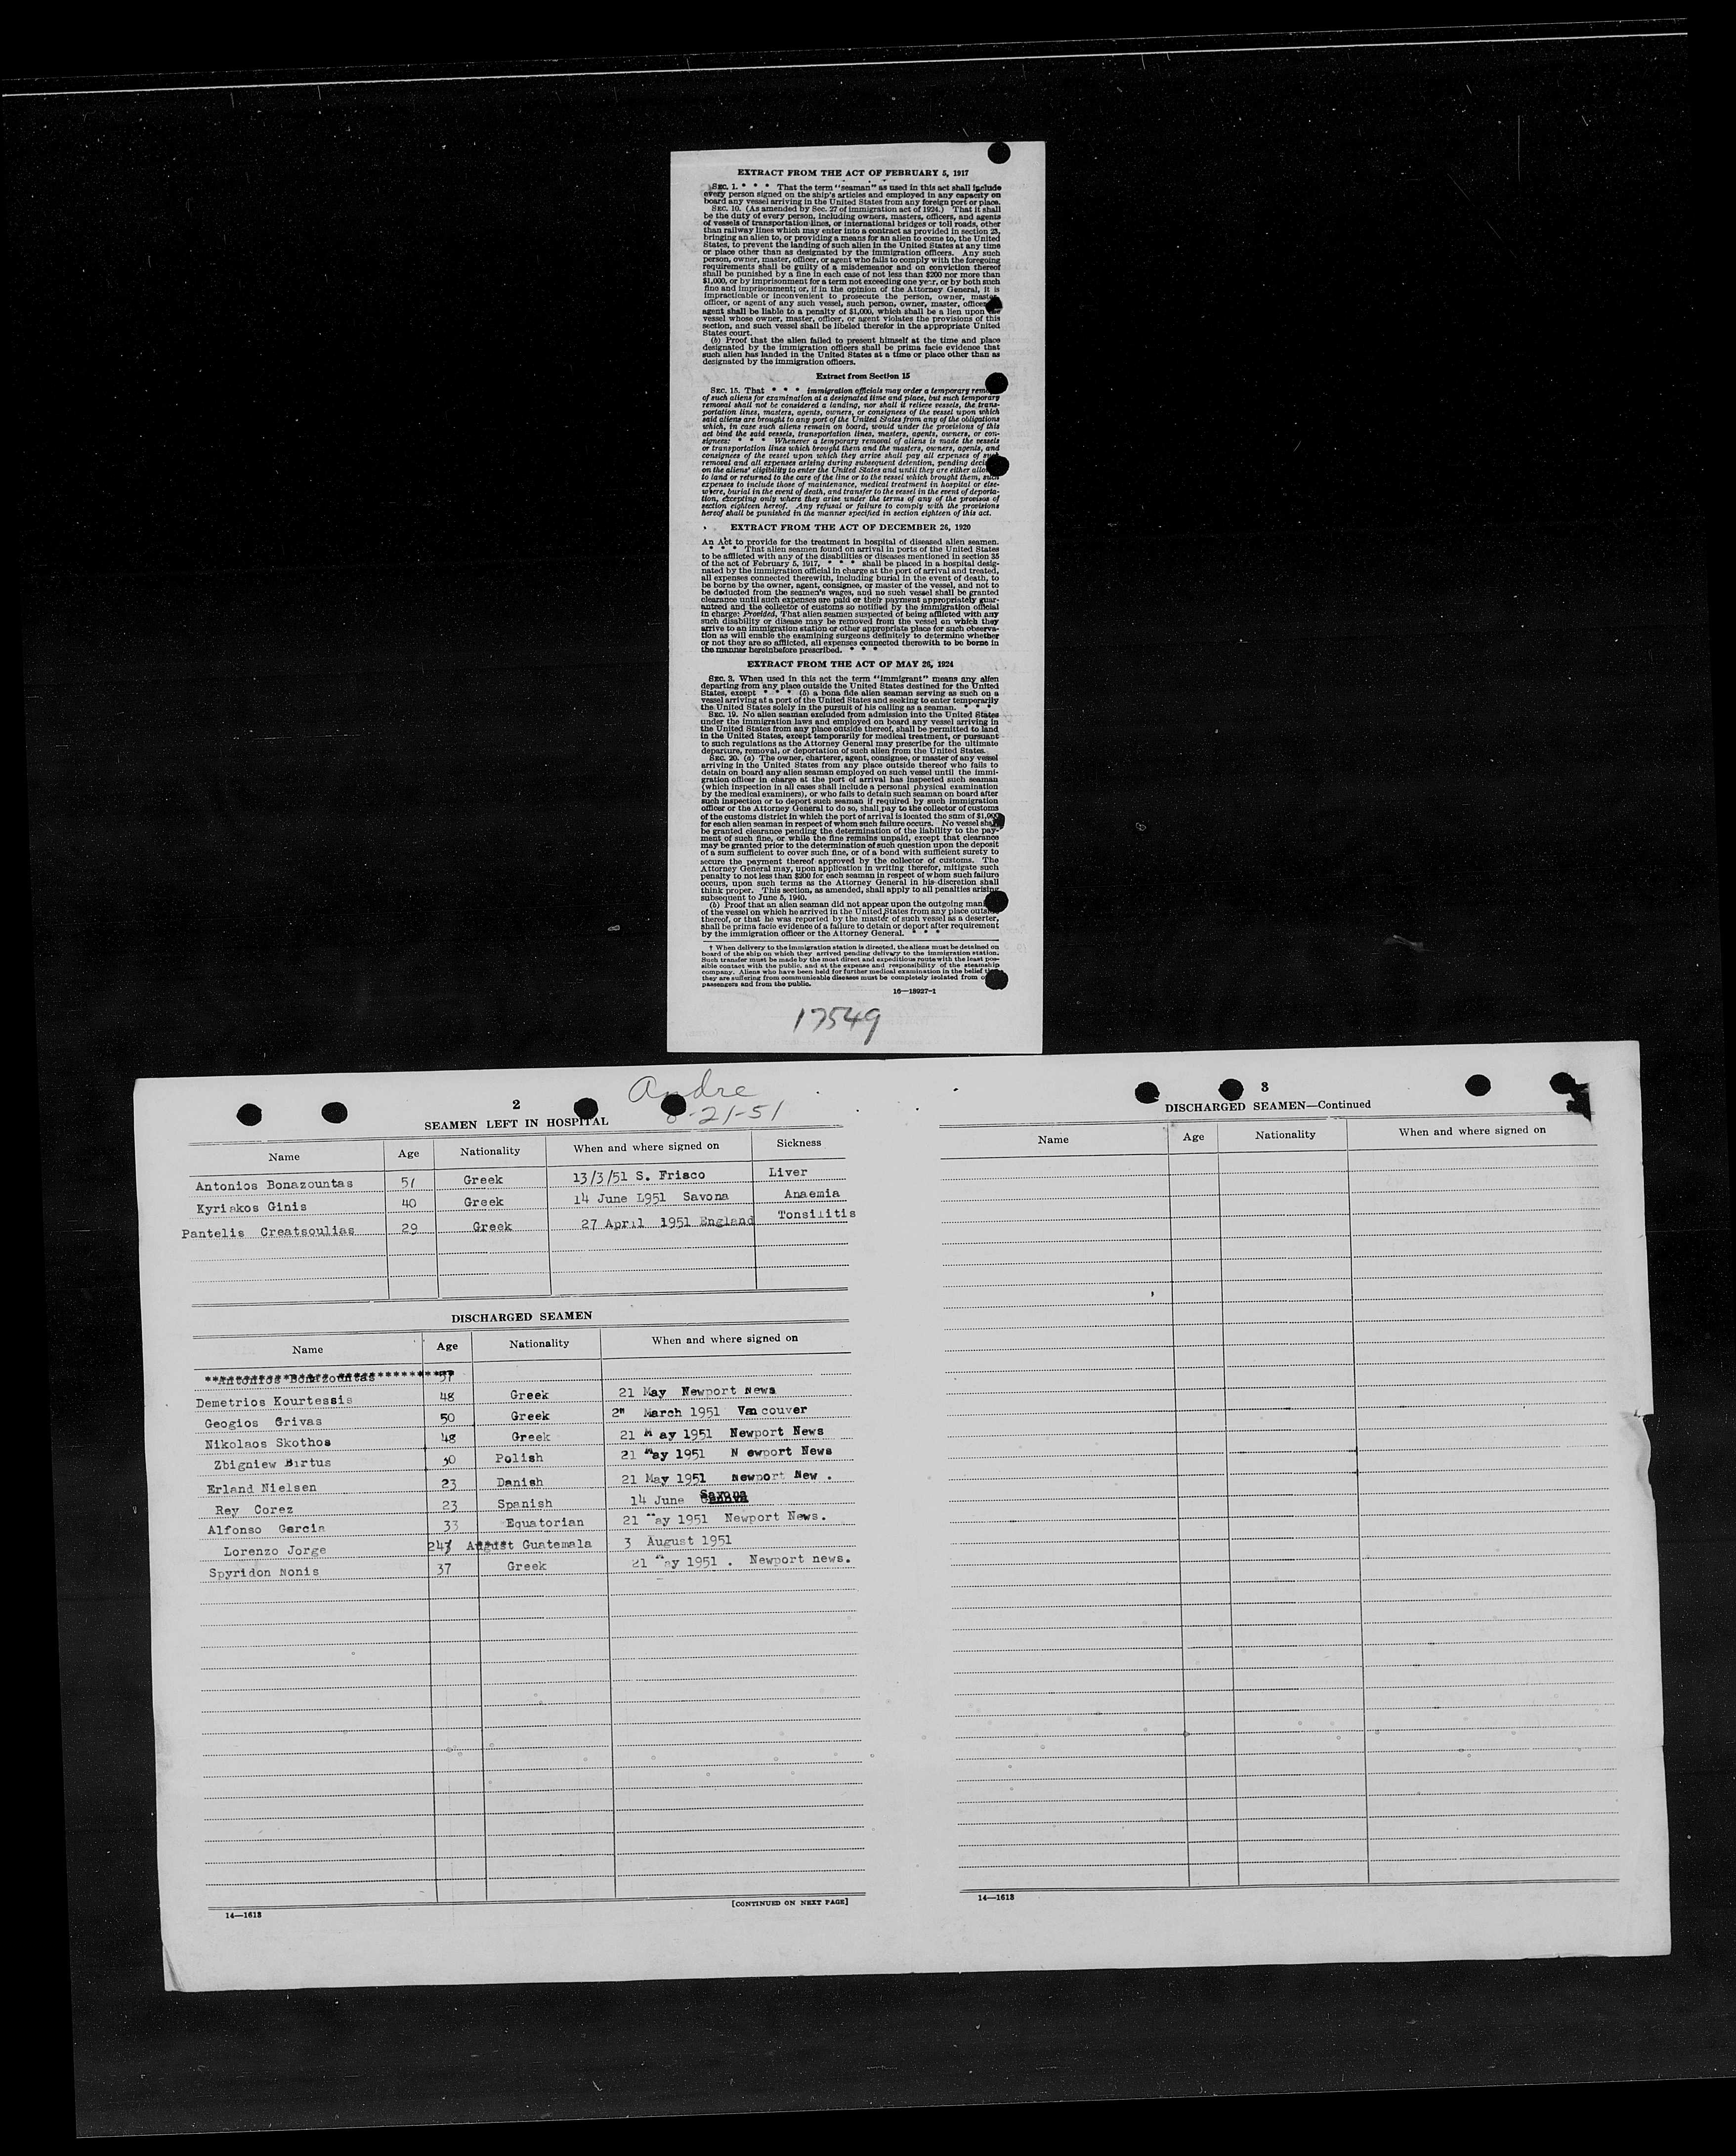 EXTRACT FROM THE ACT OF FEBRUARY 5, 1917
SEC. 1. * * * That the term "seaman" as used in this act shall include
every person signed on the ship's articles and employed in any capacity on
board any vessel arriving in the United States from any foreign port or place.
SEC. 10. (As amended by Sec. 27 of immigration act of 1924.) That it shall
be the duty of every person, including owners, masters, officers, and agents
of vessels of transportation lines, or international bridges or toll roads, other
than railway lines which may enter into a contract as provided in section 23,
bringing an alien to, or providing a means for an alien to come to, the United
States, to prevent the landing of such alien in the United States at any time
or place other than as designated by the immigration officers. Any such
person, owner, master, officer, or agent who fails to comply with the foregoing
requirements shall be guilty of a misdemeanor and on conviction thereof
shall be punished by a fine in each case of not less than $200 nor more than
$1,000, or by imprisonment for a term not exceeding one year, or by both such
fine and imprisonment; or, if in the opinion of the Attorney General, it is
impracticable or inconvenient to prosecute the person, owner, master,
officer, or agent of any such vessel, such person, owner, master, officer
agent shall be liable to a penalty of $1,000, which shall be a lien upon the
vessel whose owner, master, officer, or agent violates the provisions of this
section, and such vessel shall be libeled therefor in the appropriate United
States court.
(b) Proof that the alien failed to present himself at the time and place
designated by the immigration officers shall be prima facie evidence that
such alien has landed in the United States at a time or place other than as
designated by the immigration officers.
Extract from Section 15
SEC. 15. That * * * immigration officials may order a temporary
of such aliens for examination at a designated time and place, but such temporary
removal shall not be considered a landing, nor shall it relieve vessels, the trans-
portation lines, masters, agents, owners, or consignees of the vessel upon which
said aliens are brought to any port of the United States from any of the obligations
which, in case such aliens remain on board, would under the provisions of this
act bind the said vessels, transportation lines, masters, agents, owners, or con-
signees: * * * Whenever a temporary removal of aliens is made the vessels
or transportation lines which brought them and the masters, owners, agents, and
consignees of the vessel upon which they arrive shall pay all expenses of such
removal and all expenses arising during subsequent detention, pending
on the aliens' eligibility to enter the United States and until they are either
to land or returned to the care of the line or to the vessel which brought them, such
expenses to include those of maintenance, medical treatment in hospital or else-
where, burial in the event of death, and transfer to the vessel in the event of deporta-
tion, excepting only where they arise under the terms of any of the provisos of
section eighteen hereof. Any refusal or failure to comply with the provisions
hereof shall be punished in the manner specified in section eighteen of this act.
EXTRACT FROM THE ACT OF DECEMBER 26, 1920
An Act to provide for the treatment in hospital of diseased alien seamen.
* * * That alien seamen found on arrival in ports of the United States
to be afflicted with any of the disabilities or diseases mentioned in section 35
of the act of February 5, 1917, * * * shall be placed in a hospital desig-
nated by the immigration official in charge at the port of arrival and treated,
all expenses connected therewith, including burial in the event of death, to
be borne by the owner, agent, consignee, or master of the vessel, and not to
be deducted from the seamen's wages, and no such vessel shall be granted
clearance until such expenses are paid or their payment appropriately guar-
anteed and the collector of customs so notified by the immigration official
in charge: Provided, That alien seamen suspected of being afflicted with any
such disability or disease may be removed from the vessel on which they
arrive to an immigration station or other appropriate place for such observa-
tion as will enable the examining surgeons definitely to determine whether
or not they are so afflicted, all expenses connected therewith to be borne in
the manner hereinbefore prescribed. * * *
EXTRACT FROM THE ACT OF MAY 26, 1924
SEC. 3. When used in this act the term "immigrant" means any alien
departing from any place outside the United States destined for the United
States, except * * * (5) a bona fide alien seaman serving as such on a
vessel arriving at a port of the United States and seeking to enter temporarily
the United States solely in the pursuit of his calling as a seaman. * * *
SEC. 19. No alien seaman excluded from admission into the United States
under the immigration laws and employed on board any vessel arriving in
the United States from any place outside thereof, shall be permitted to land
in the United States, except temporarily for medical treatment, or pursuant
to such regulations as the Attorney General may prescribe for the ultimate
departure, removal, or deportation of such alien from the United States.
SEC. 20. (a) The owner, charterer, agent, consignee, or master of any vessel
arriving in the United States from any place outside thereof who fails to
detain on board any alien seaman employed on such vessel until the immi-
gration officer in charge at the port of arrival has inspected such seaman
(which inspection in all cases shall include a personal physical examination
by the medical examiners), or who fails to detain such seaman on board after
such inspection or to deport such seaman if required by such immigration
officer or the Attorney General to do so, shall pay to the collector of customs
of the customs district in which the port of arrival is located the sum of $1,000
for each alien seaman in respect of whom such failure occurs. No vessel shall
be granted clearance pending the determination of the liability to the pay-
ment of such fine, or while the fine remains unpaid, except that clearance
may be granted prior to the determination of such question upon the deposit
of a sum sufficient to cover such fine, or of a bond with sufficient surety to
secure the payment thereof approved by the collector of customs. The
Attorney General may, upon application in writing therefor, mitigate such
penalty to not less than $200 for each seaman in respect of whom such failure
occurs, upon such terms as the Attorney General in his discretion shall
think proper. This section, as amended, shall apply to all penalties arising
subsequent to June 5, 1940.
(b) Proof that an alien seaman did not appear upon the outgoing
of the vessel on which he arrived in the United States from any place outside
thereof, or that he was reported by the master of such vessel as a deserter,
shall be prima facie evidence of a failure to detain or deport after requirement
by the immigration officer or the Attorney General. * * *
† When delivery to the immigration station is directed, the aliens must be detained on
board of the ship on which they arrived pending delivery to the immigration station.
Such transfer must be made by the most direct and expeditious route with the least pos-
sible contact with the public, and at the expense and responsibility of the steamship
company. Aliens who have been held for further medical examination in the belief
they are suffering from communicable diseases must be completely isolated from
passengers and from the public.
16—18927-1
17549
Andre
2
8-21-51
SEAMEN LEFT IN HOSPITAL
Name Age Nationality When and where signed on Sickness
Antonios Bonazountas 51 Greek 13/3/51 S. Frisco Liver
Kyriakos Ginis 40 Greek 14 June L951 Savona Anaemia
Pantelis Creatsoulias 29 Greek 27 April 1951 England Tonsilitis
DISCHARGED SEAMEN
Name Age Nationality When and where signed on
Antonios Bonazountas 51
Demetrios Kourtessis 48 Greek 21 May Newport News
Geogios Grivas 50 Greek 2" March 1951 Vancouver
Nikolaos Skothos 48 Greek 21 May 1951 Newport News
Zbigniew Birtus 30 Polish 21 May 1951 N ewport News
Erland Nielsen 23 Danish 21 May 1951 Newport New .
Rey Corez 23 Spanish 14 June Savona
Alfonso Garcia 33 Equatorian 21 May 1951 Newport News.
Lorenzo Jorge 24 August Guatemala 3 August 1951
Spyridon Nonis 37 Greek 21 May 1951 . Newport news.
14—1613
[CONTINUED ON NEXT PAGE]
3
DISCHARGED SEAMEN—Continued
Name Age Nationality When and where signed on
14—1613